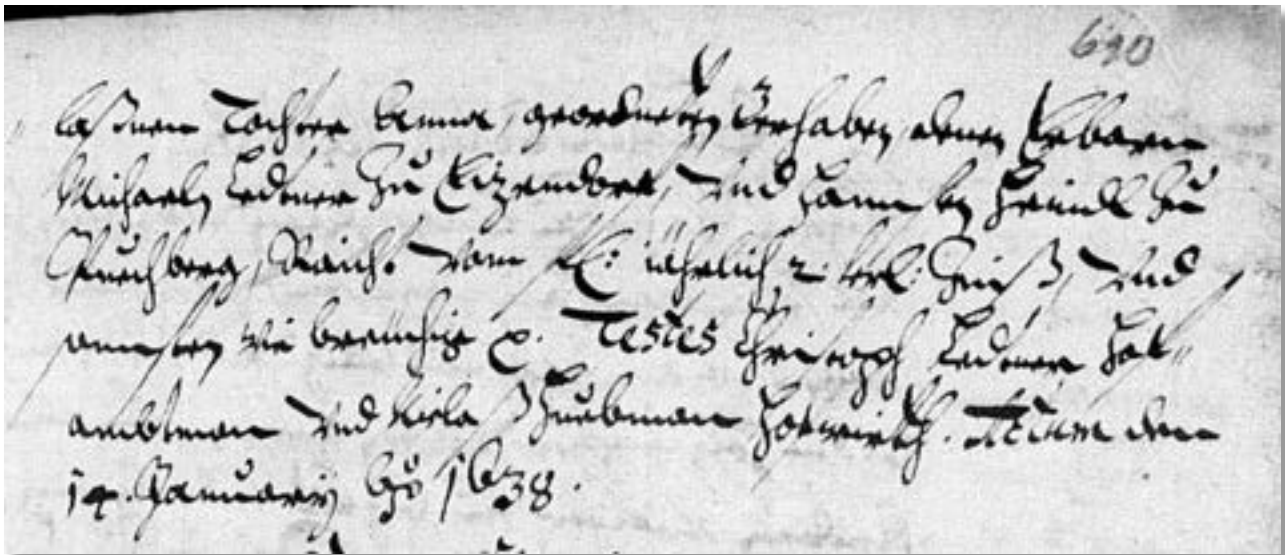 690
laßnen Tochter Anna, geordneten Gerhaben, denen Erbarn
Michaeln Ledrer zu Eizendorf, Und Hannsen Heindl zu
Puechberg, Raicht vom fl: jährlich 2 krl: Zinß, Und
sonnsten wie breuchig p. Testes Christoph Ledrer Hof„
ambtman Und Niclaß Huebman Hofwirth. Actum den
14. January Ao 1638.